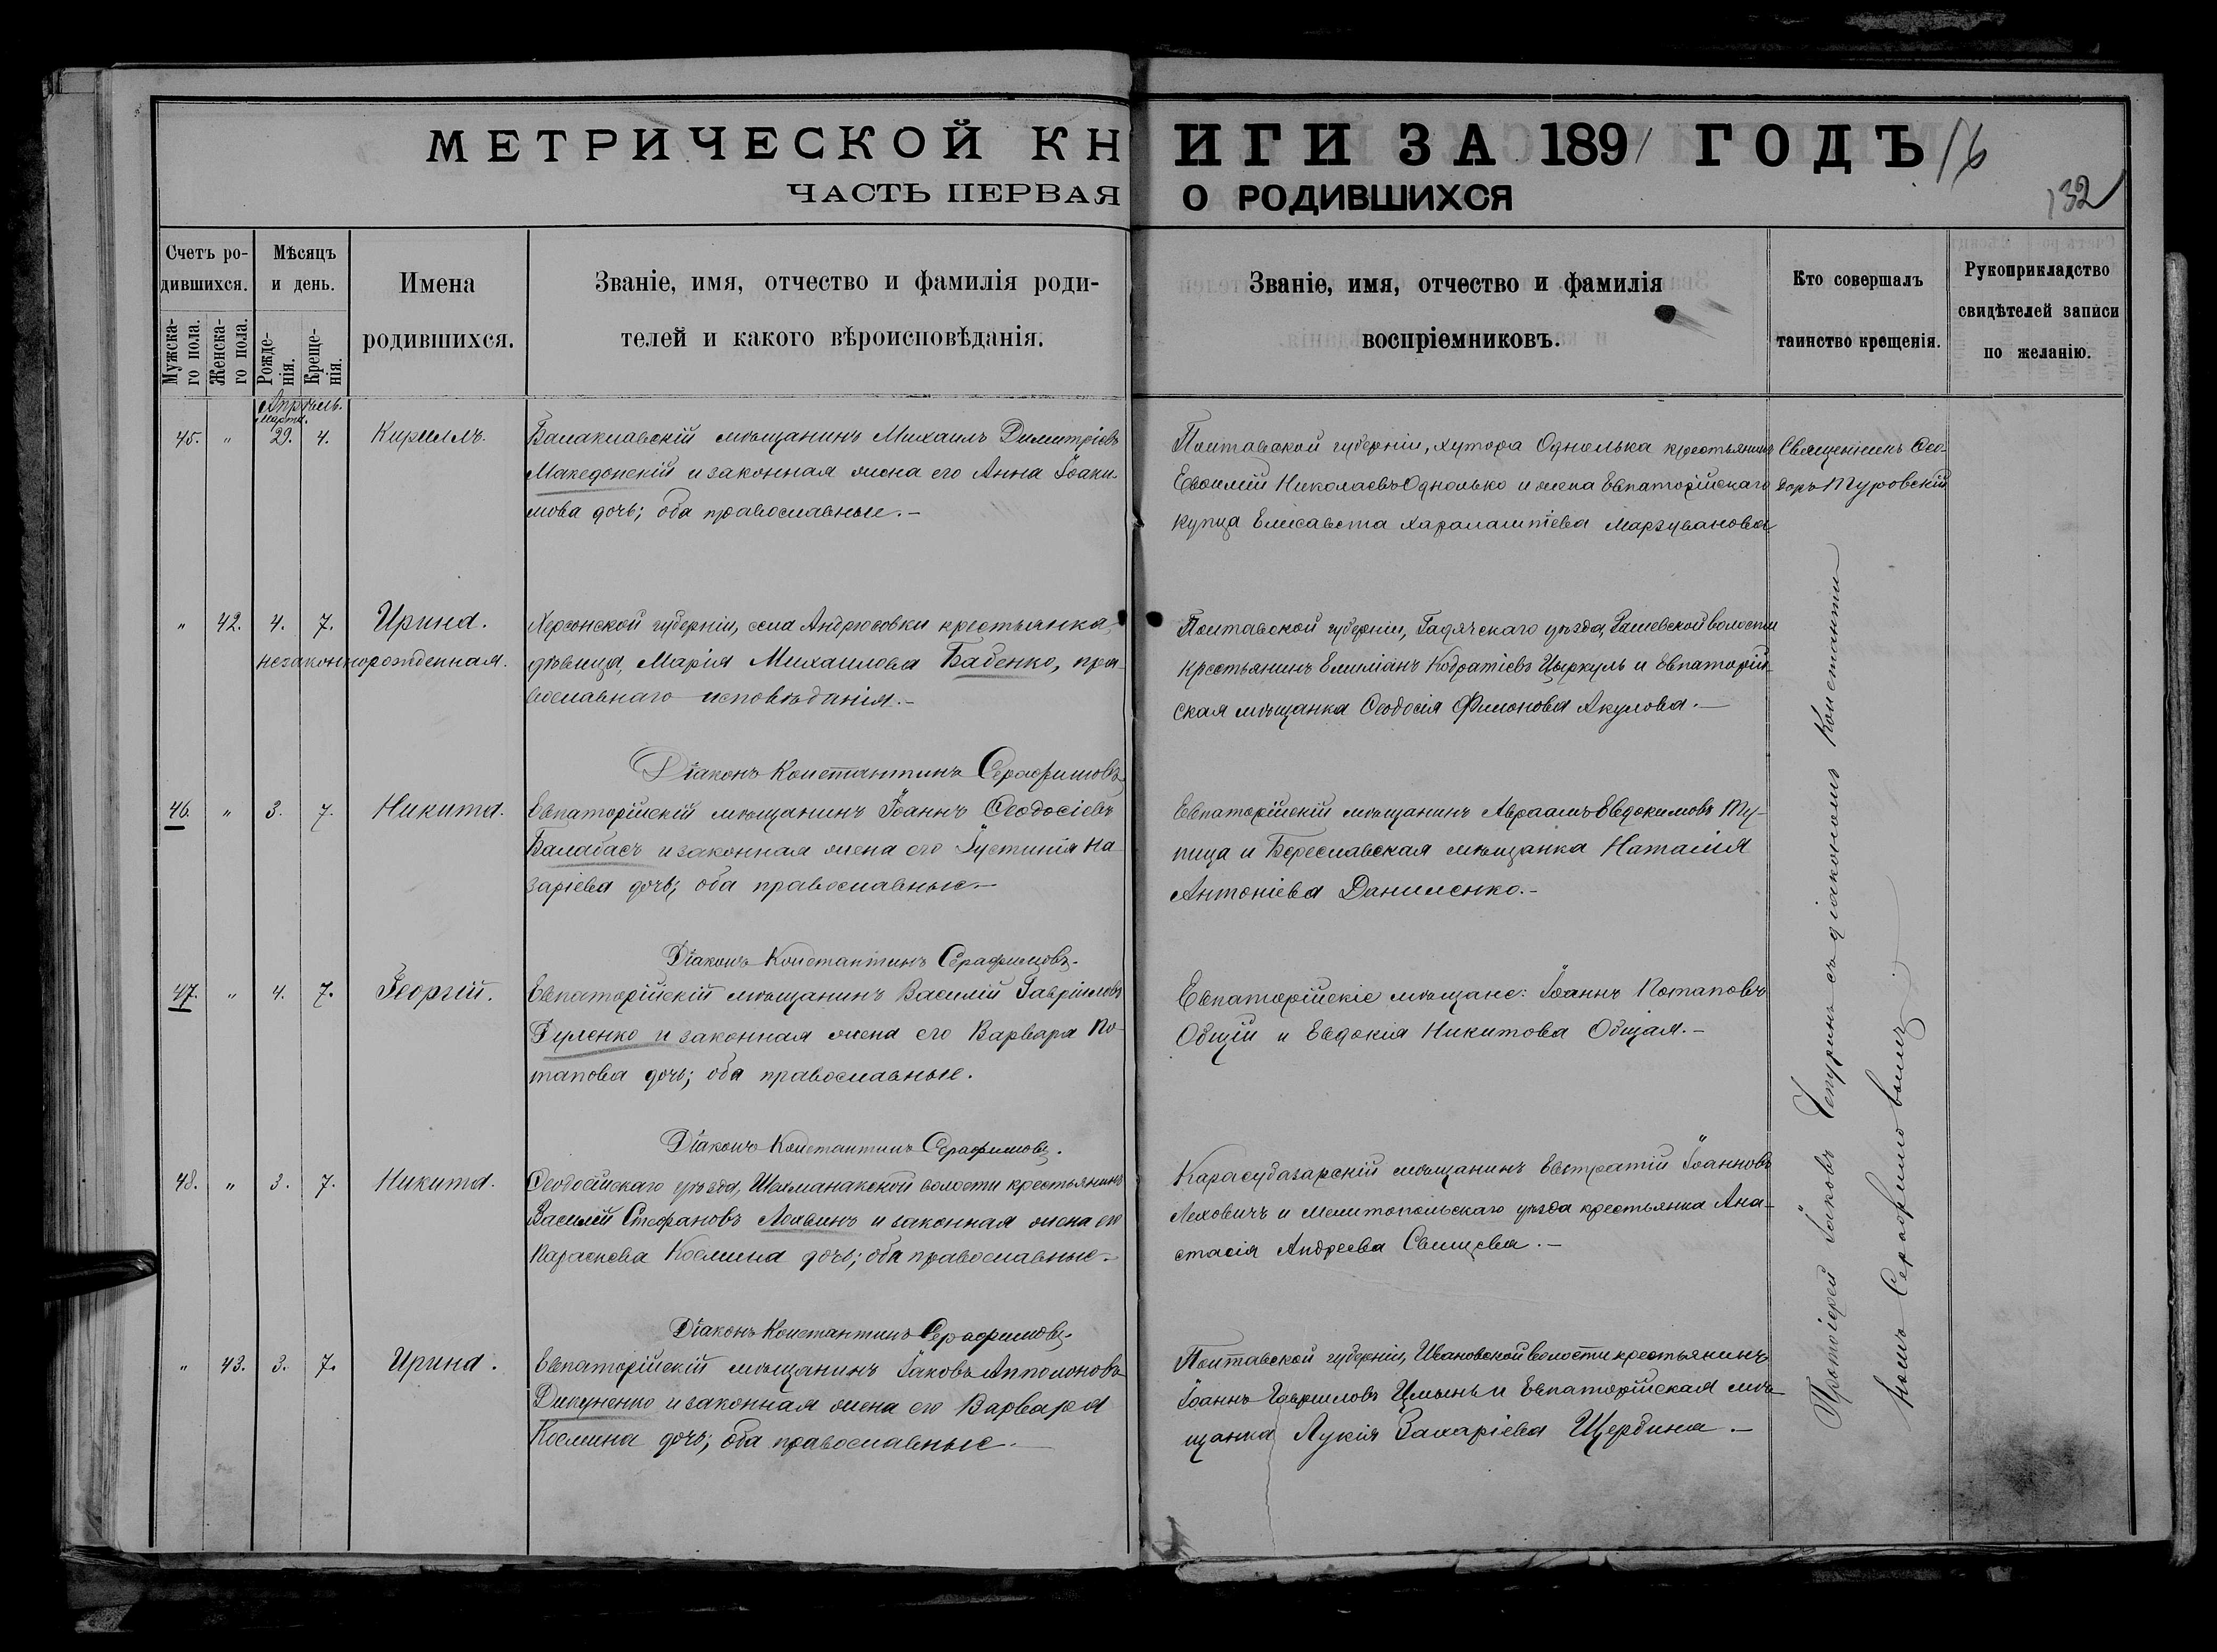 МЕТРИЧЕСКОЙ КНИГИ ЗА 1891 ГОДЪ 16
132
ЧАСТЬ ПЕРВАЯ О РОДИВШИХСЯ
Счетъ ро-
дившихся.
Мужска-
го пола.
Женска-
го пола.
Мѣсяцъ
и день.
Рожде-
нія.
Креще-
нія.
Имена
родившихся.
Званіе, имя, отчество и фамилія роди-
телей и какого вѣроисповѣданія.
Званіе, имя, отчество и фамилія
воспріемниковъ.
Кто совершалъ
таинство крещенія.
Рукоприкладство
свидѣтелей записи
по желанію.
Апрѣль.
Марта.
45. " 29. 4. Кириллъ.
Балаклавскій мѣщанинъ Михаилъ Димитріевъ
Македонскій и законная жена его Анна Іоаки-
мова дочь; оба православные.-
Полтавской губерніи, хутора Однолька крестьянинъ
Евѳимій Николаевъ Однолько и жена Евпаторійскаго
купца Елисавета Харалампіева Маргуванова
Священникъ Ѳео-
доръ Туровскій
" 42. 4. 7. Ирина.
незаконнорожденная.
Херсонской губерніи, села Андрюсовки крестьянка,
дѣвица, Марія Михаилова Бабенко, пра-
вославнаго исповѣданія.-
Полтавской губерніи, Гадячскаго уѣзда, Рашевской волости
крестьянинъ Емиліанъ Кодратіевъ Цыркуль и Евпаторій-
ская мѣщанка Ѳеодосія Филонова Акулова.-
Діаконъ Константинъ Серафимовъ
46. " 3. 7. Никита.
Евпаторійскій мѣщанинъ Іоаннъ Ѳеодосіевъ
Балабасъ и законная жена его Іустинія На-
заріева дочь; оба православные.-
Евпаторійскій мѣщанинъ Авраамъ Евдокимовъ Ту-
пица и Бериславская мѣщанка Наталія
Антоніева Даниленко.-
Діаконъ Константинъ Серафимовъ.
47. " 4. 7. Георгій.
Евпаторійскій мѣщанинъ Василій Гавріиловъ
Гуленко и законная жена его Варвара По-
тапова дочь; оба православные.
Евпаторійскіе мѣщане: Іоаннъ Потаповъ
Общій и Евдокія Никитова Общая.-
Діаконъ Константинъ Серафимовъ.
48. " 3. 7. Никита.
Ѳеодосійскаго уѣзда, Шейманакской волости крестьянинъ
Василій Стефановъ Лохвинъ и законная жена его
Параскева Космина дочь; оба православные.-
Карасубазарскій мѣщанинъ Евстратій Іоанновъ
Леховичъ и Мелитопольскаго уѣзда крестьянка Ана-
стасія Андреева Свищева.-
Діаконъ Константинъ Серафимовъ.
" 43. 3. 7. Ирина.
Евпаторійскій мѣщанинъ Іаковъ Апполоновъ
Дикуненко и законная жена его Варвара
Космина дочь; оба православные.-
Полтавской губерніи, Ивановской волости крестьянинъ
Іоаннъ Гавриловъ Цмынь и Евпаторійская мѣ-
щанка Лукія Захаріева Щербина.-
Протоіерей Іаковъ Чепуринъ съ діакономъ Константи-
номъ Серафимовымъ.